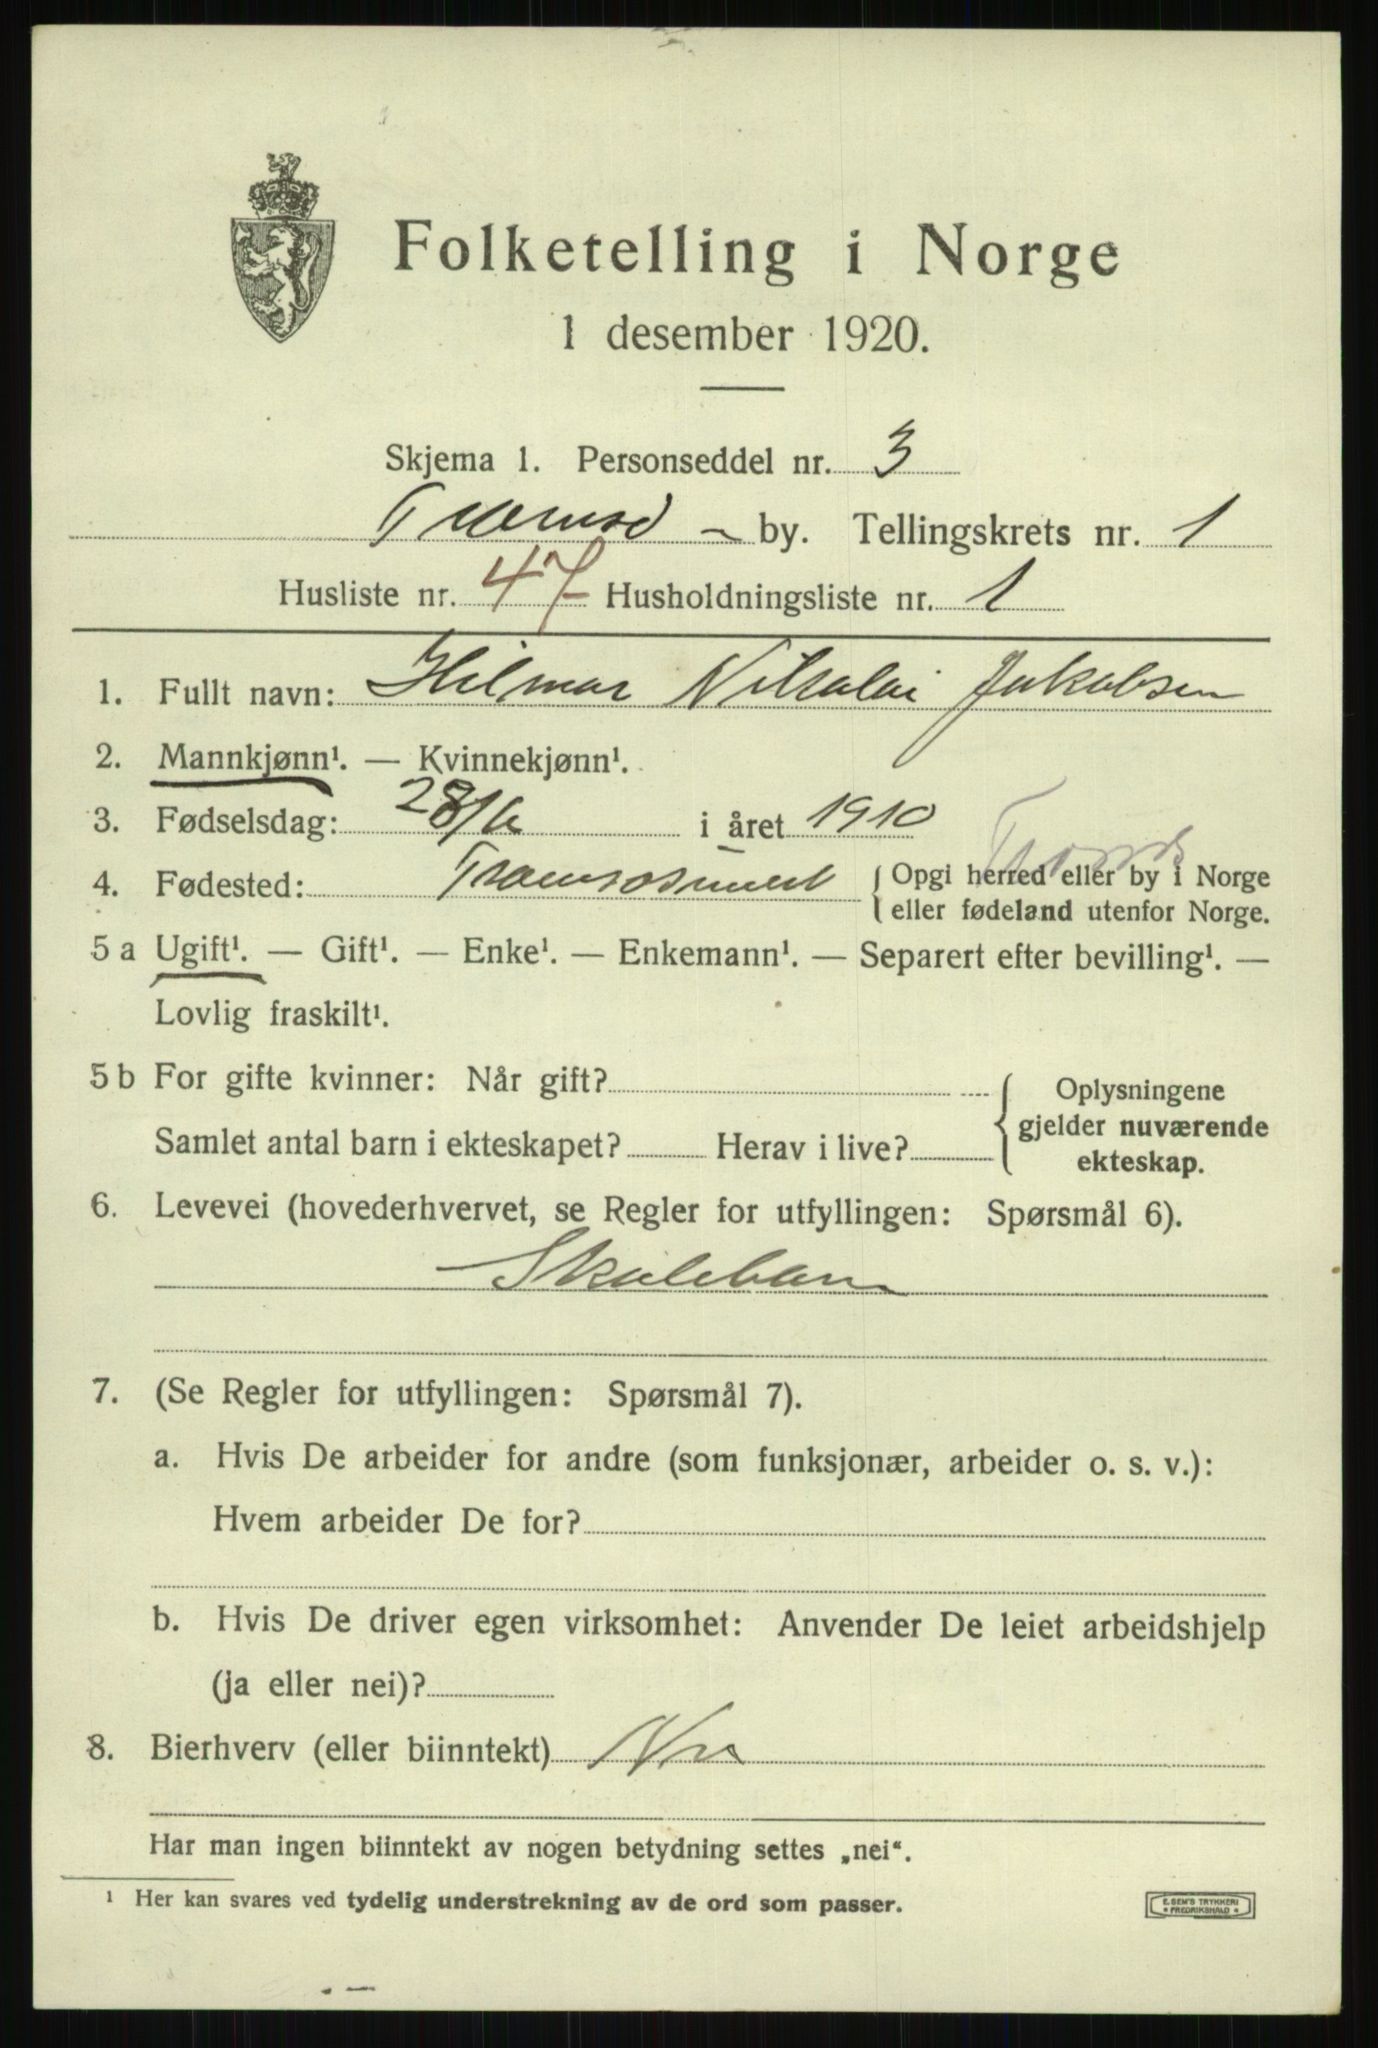 Folketelling i Norge
1 desember 1920.
Skjema 1. Personseddel nr. 3
Tromsø by. Tellingskrets nr. 1
Husliste nr. 47 Husholdningsliste nr. 1
1. Fullt navn: Hilmar Nikolai Jakobsen
2. Mannkjønn¹. — Kvinnekjønn¹.
3. Fødselsdag: 28/6 i året 1910
4. Fødested: Tromsøsund { Opgi herred eller by i Norge
eller fødeland utenfor Norge.
5 a Ugift¹. — Gift¹. — Enke¹. — Enkemann¹. — Separert efter bevilling¹. —
Lovlig fraskilt¹.
5 b For gifte kvinner: Når gift?
Samlet antal barn i ekteskapet? Herav i live?
{ Oplysningene
gjelder nuværende
ekteskap.
6. Levevei (hovederhvervet, se Regler for utfyllingen: Spørsmål 6).
Skolebarn
7. (Se Regler for utfyllingen: Spørsmål 7).
a. Hvis De arbeider for andre (som funksjonær, arbeider o. s. v.):
Hvem arbeider De for?
b. Hvis De driver egen virksomhet: Anvender De leiet arbeidshjelp
(ja eller nei)?
8. Bierhverv (eller biinntekt) Nei
Har man ingen biinntekt av nogen betydning settes „nei“.
¹ Her kan svares ved tydelig understrekning av de ord som passer.
E. SEM'S TRYKKERI
* FREDRIKSHALD *